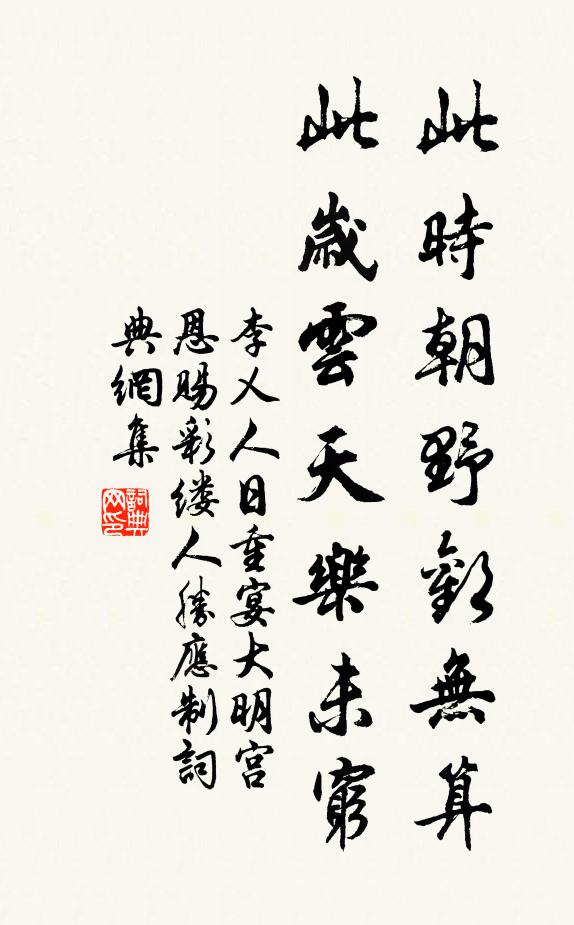 此時朝野歡無算
此歲雲天樂未窮
李乂人日重宴大明宮
恩賜彩缕人勝應制詞
典網集
詞典网印